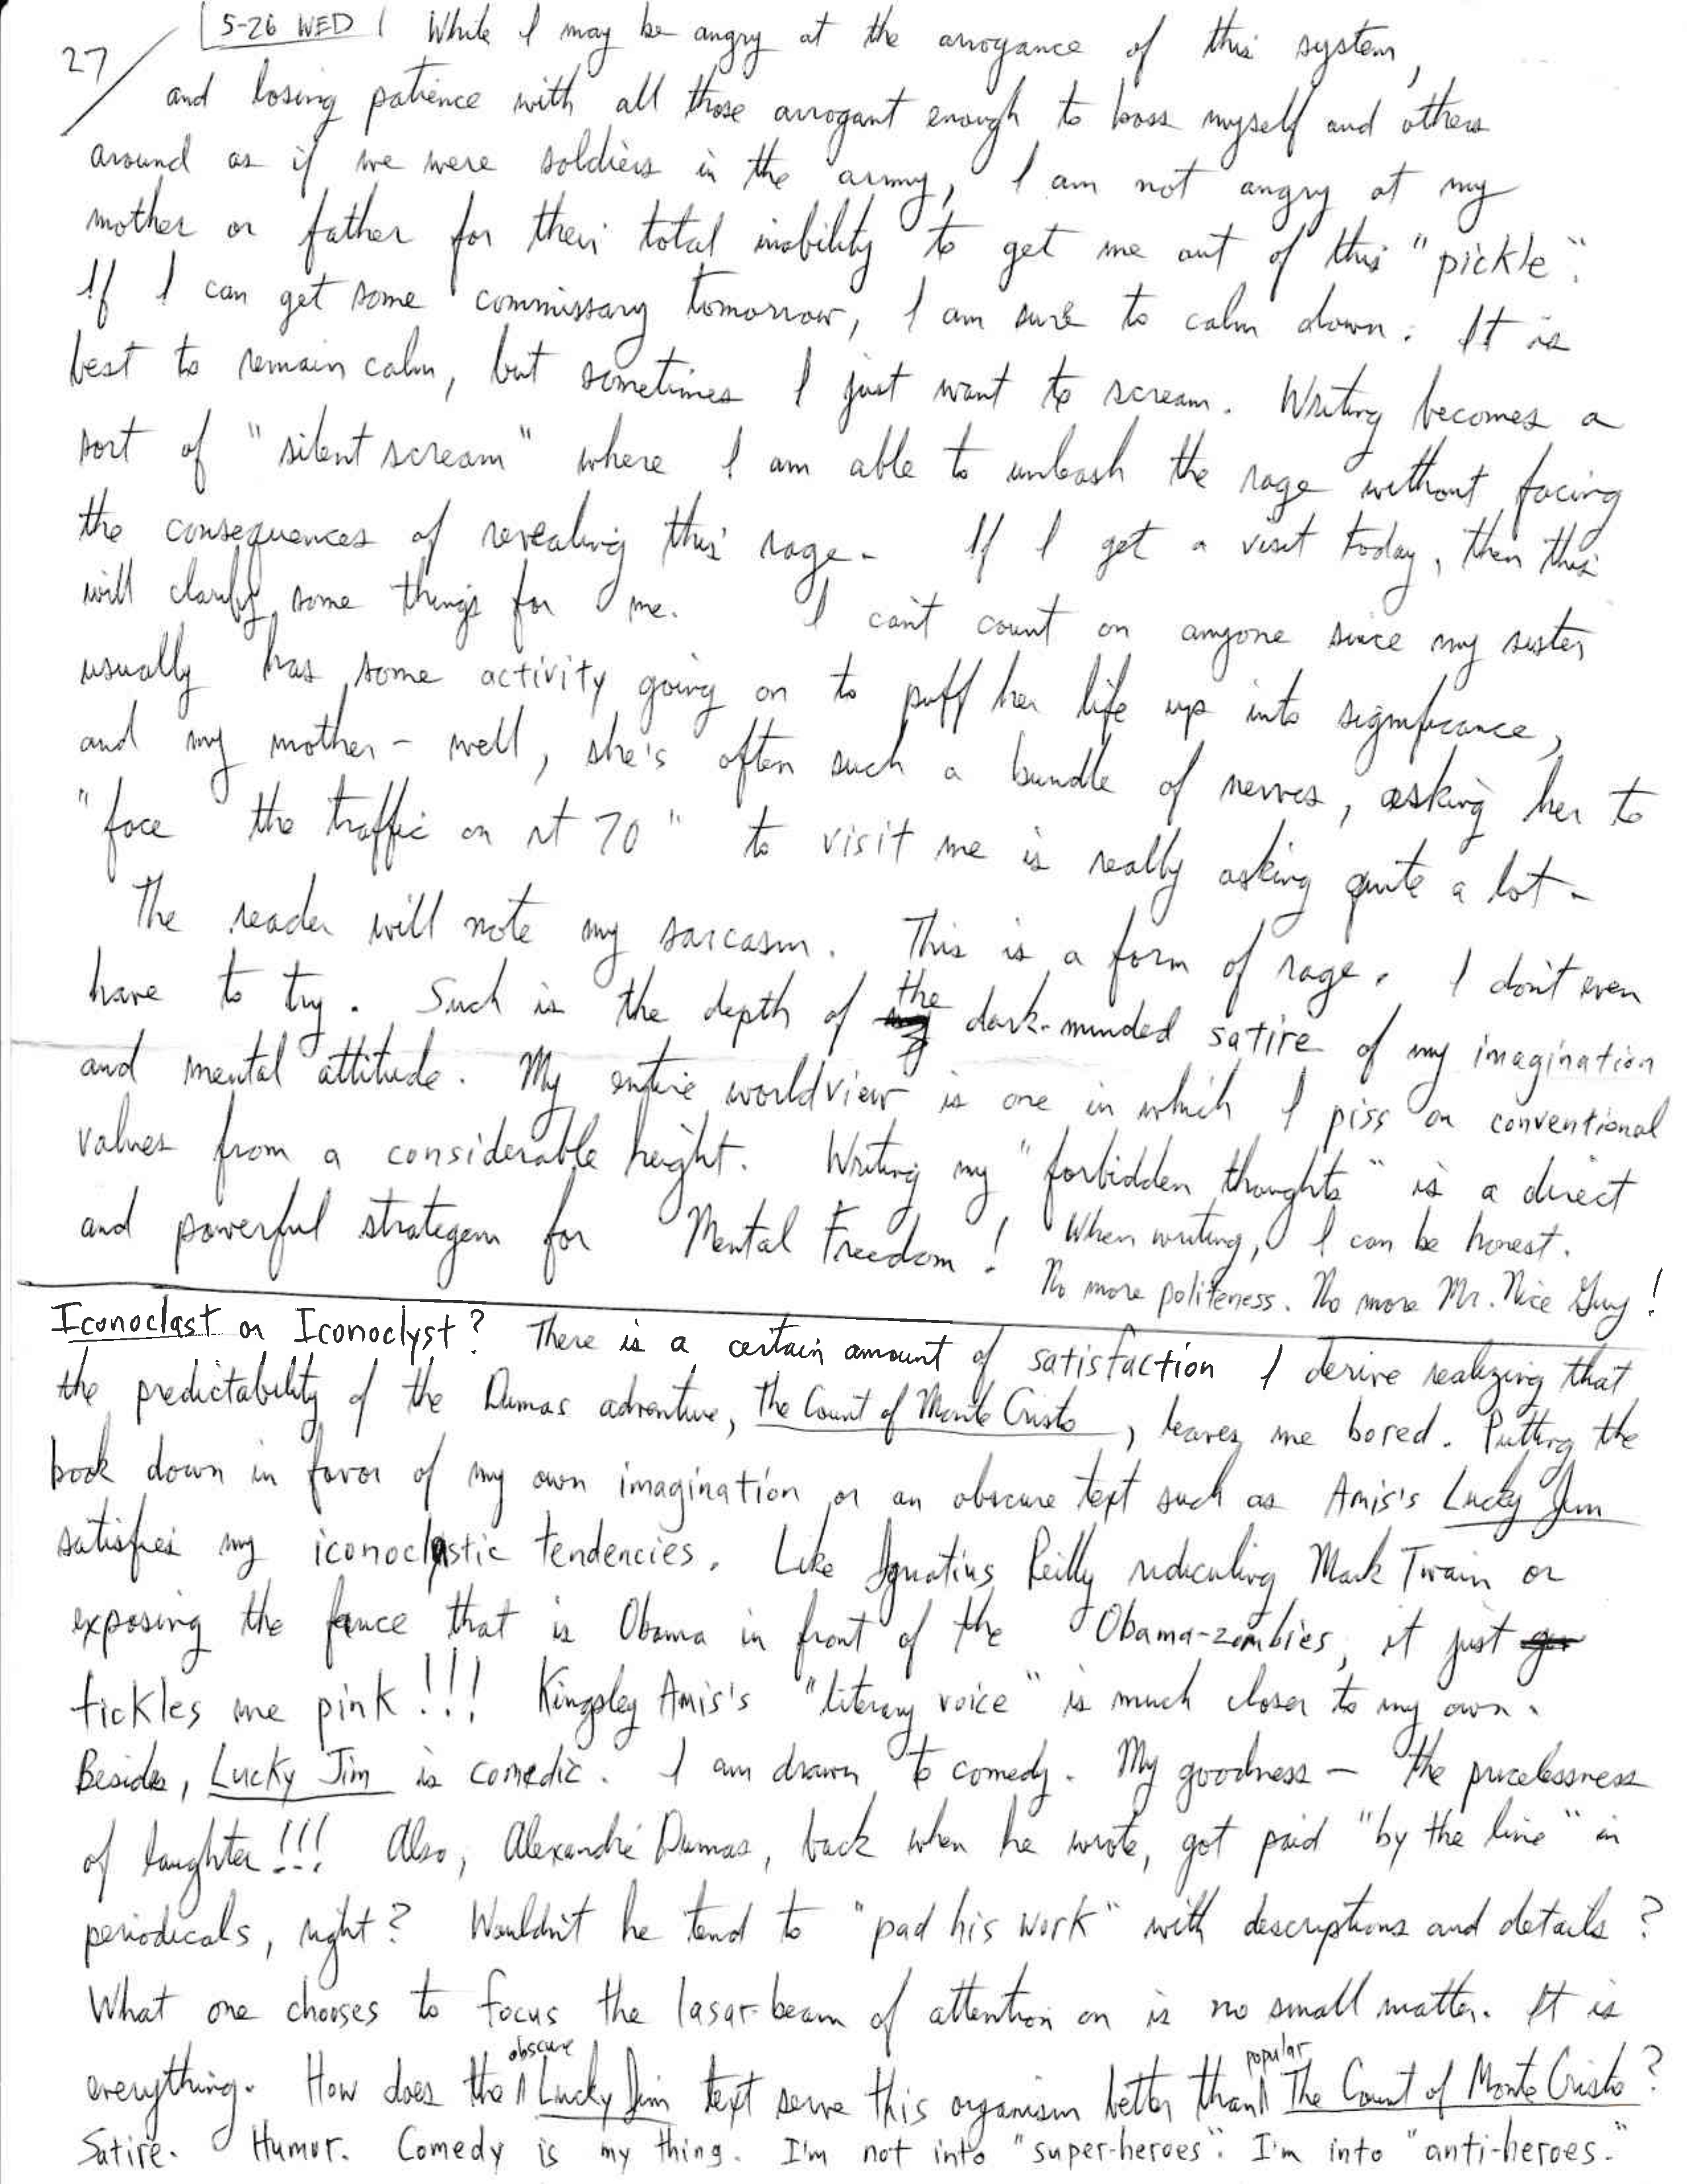 27/ 5-26 WED | While I may be angry at the arrogance of this system,
and losing patience with all those arrogant enough to boss myself and others
around as if we were soldiers in the army, I am not angry at my
mother or father for their total inability to get me out of this "pickle".
If I can get some commissary tomorrow, I am sure to calm down. It is
best to remain calm, but sometimes I just want to scream. Writing becomes a
sort of "silent scream" where I am able to unleash the rage without facing
the consequences of revealing this rage. If I get a visit today, then this
will clarify some things for me. I can't count on anyone since my sister
usually has some activity going on to puff her life up into significance,
and my mother - well, she's often such a bundle of nerves, asking her to
"face the traffic on rt 70" to visit me is really asking quite a lot.
The reader will note my sarcasm. This is a form of rage. I don't even
have to try. Such is the depth of the dark-minded satire of my imagination
and mental attitude. My entire worldview is one in which I piss on conventional
values from a considerable height. Writing my "forbidden thoughts" is a direct
and powerful strategem for Mental Freedom! When writing, I can be honest.
No more politeness. No more Mr. Nice Guy!
Iconoclast or Iconoclyst? There is a certain amount of satisfaction I derive realizing that
the predictability of the Dumas adventure, The Count of Monte Cristo, leaves me bored. Putting the
book down in favor of my own imagination or an obscure text such as Amis's Lucky Jim
satisfies my iconoclastic tendencies. Like Ignatius Reilly ridiculing Mark Twain or
exposing the farce that is Obama in front of the Obama-zombies, it just
tickles me pink!!! Kingsley Amis's "literary voice" is much closer to my own.
Besides, Lucky Jim is comedic. I am drawn to comedy. My goodness - the pricelessness
of laughter!!! Also, Alexandré Dumas, back when he wrote, got paid "by the line" in
periodicals, right? Wouldn't he tend to "pad his work" with descriptions and details?
What one chooses to focus the lasar-beam of attention on is no small matter. It is
everything. How does the obscure Lucky Jim text serve this organism better than popular The Count of Monte Cristo?
Satire. Humor. Comedy is my thing. I'm not into "super-heroes". I'm into "anti-heroes."